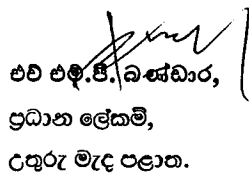 එච් එම්.පී. බණ්ඩාර,
ප්‍රධාන ලේකම්,
උතුරු මැද පළාත.